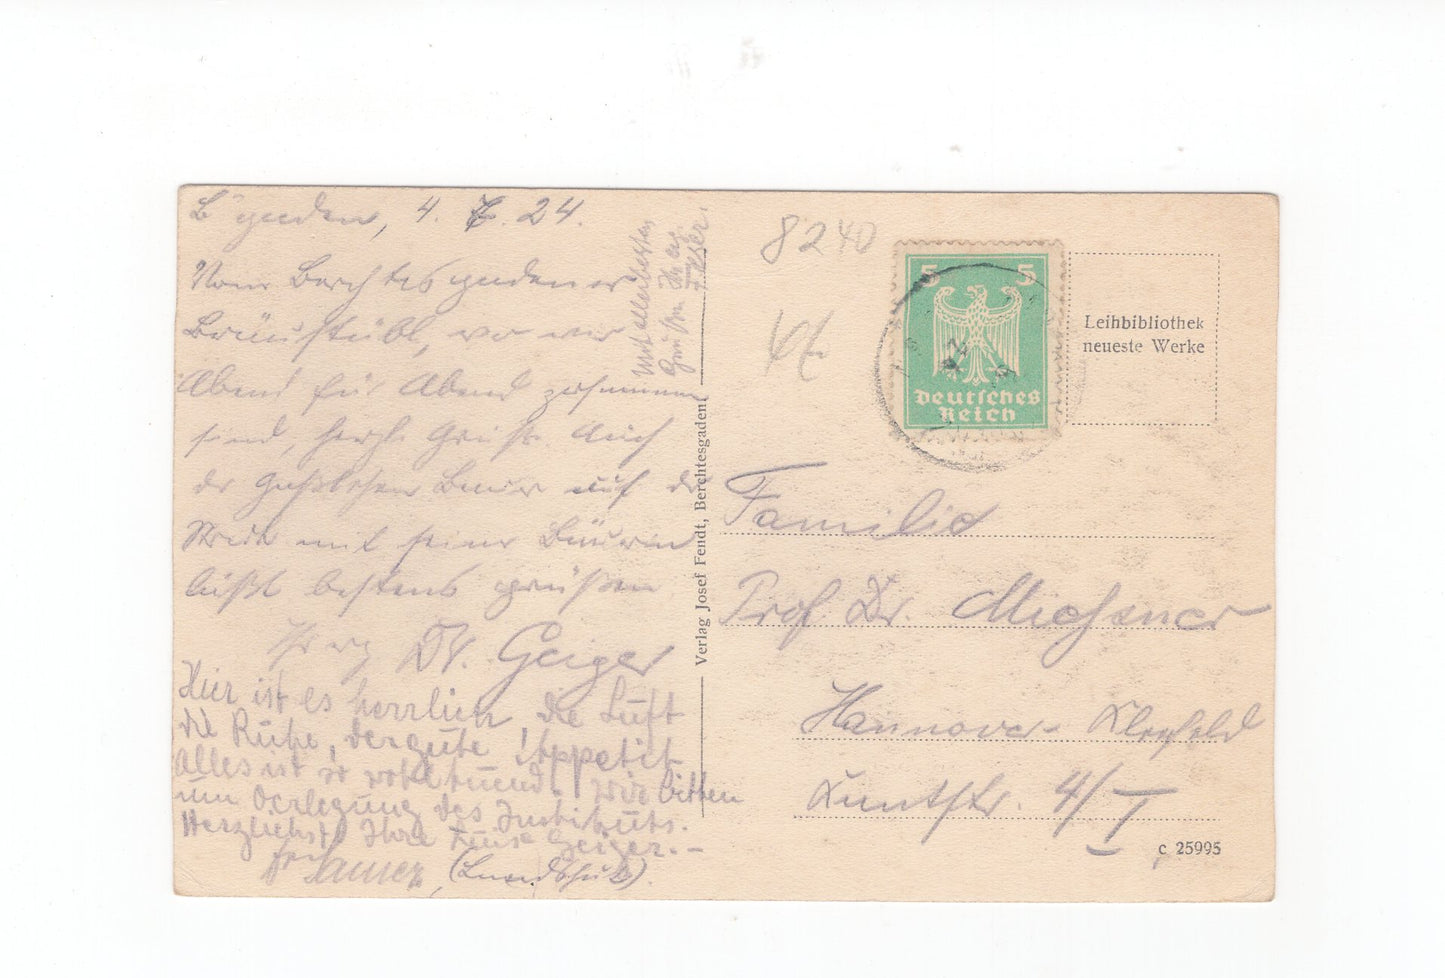 B'gaden, 4. 7. 24.
Vom Berchtesgadener
Bräustübl, wo wir
Abend für Abend zusammen
sind, herzl. Grüße. Auch
der Bauer auf der
mit seiner Bäuerin
läßt bestens grüßen
Ihr Dr. Geiger
Hier ist es herrlich, die Luft
die Ruhe, der gute Appetit
Alles ist so wohltuend! Wir bitten
um Verlegung des Instituts.
Herzlichst Ihre Geiger.-
(Landshut).
Mit allerbesten
Grüßen Ihr
Verlag Josef Fendt, Berchtesgaden
8240
5 5
Deutsches
Reich
Leihbibliothek
neueste Werke
Familie
Prof. Dr.
Hannover-Kleefeld
4/I
c 25995